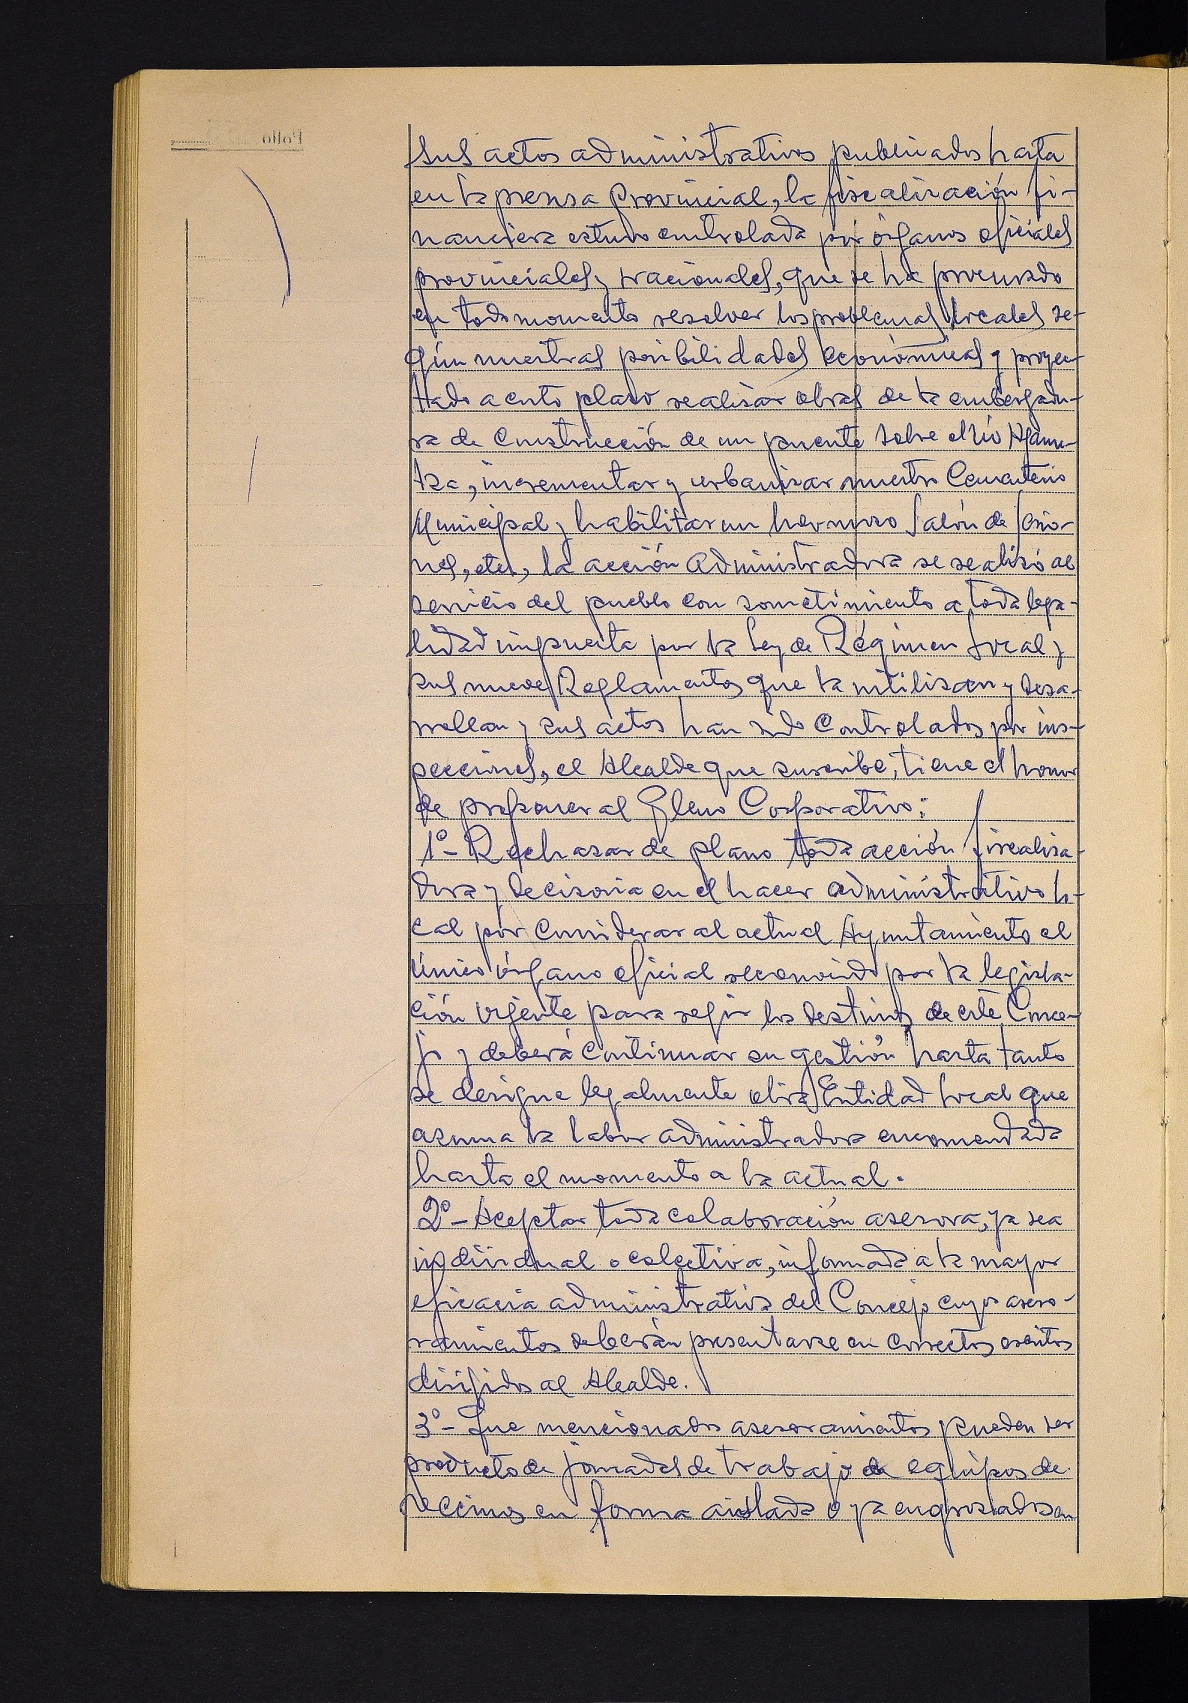 sus actos administrativos publicados hasta
en la prensa Provincial, la fiscalización fi-
nanciera estuvo controlada por órganos oficiales
provinciales y nacionales, que se ha procurado
en todo momento resolver los problemas locales se-
gún nuestras posibilidades económicas y proyec-
tado a corto plazo realizar obras de la embergadu-
ra de Construcción de un puente sobre el río Agaun-
tza, incrementar y urbanizar nuestro Cementerio
Municipal y habilitar un hermoso Salón de Sesio-
nes, etc., la acción Administradora se realizó al
servicio del pueblo con sometimiento a toda lega-
lidad impuesta por la Ley de Régimen Local y
sus nueve Reglamentos que la utilizan y desa-
rrollan y sus actos han sido Controlados por ins-
pecciones, el Alcalde que suscribe, tiene el honor
de proponer al Pleno Corporativo:
1º- Rechazar de plano toda acción fiscaliza-
dora y decisoria en el hacer administrativo lo-
cal por Considerar al actual Ayuntamiento el
único órgano oficial reconocido por la legisla-
ción vigente para regir los destinos de este Conce-
jo y deberá Continuar su gestión hasta tanto
se designe legalmente otra Entidad local que
asuma la labor administradora encomendada
hasta el momento a la actual.
2º- Aceptar toda colaboración asesora, ya sea
individual o colectiva, informada a la mayor
eficacia administrativa del Concejo cuyos aseso-
ramientos deberán presentarse en correctos escritos
dirigidos al Alcalde.
3º- Que mencionados asesoramientos pueden ser
producto de jornadas de trabajo de equipos de
vecinos en forma aislada o ya engrosados en